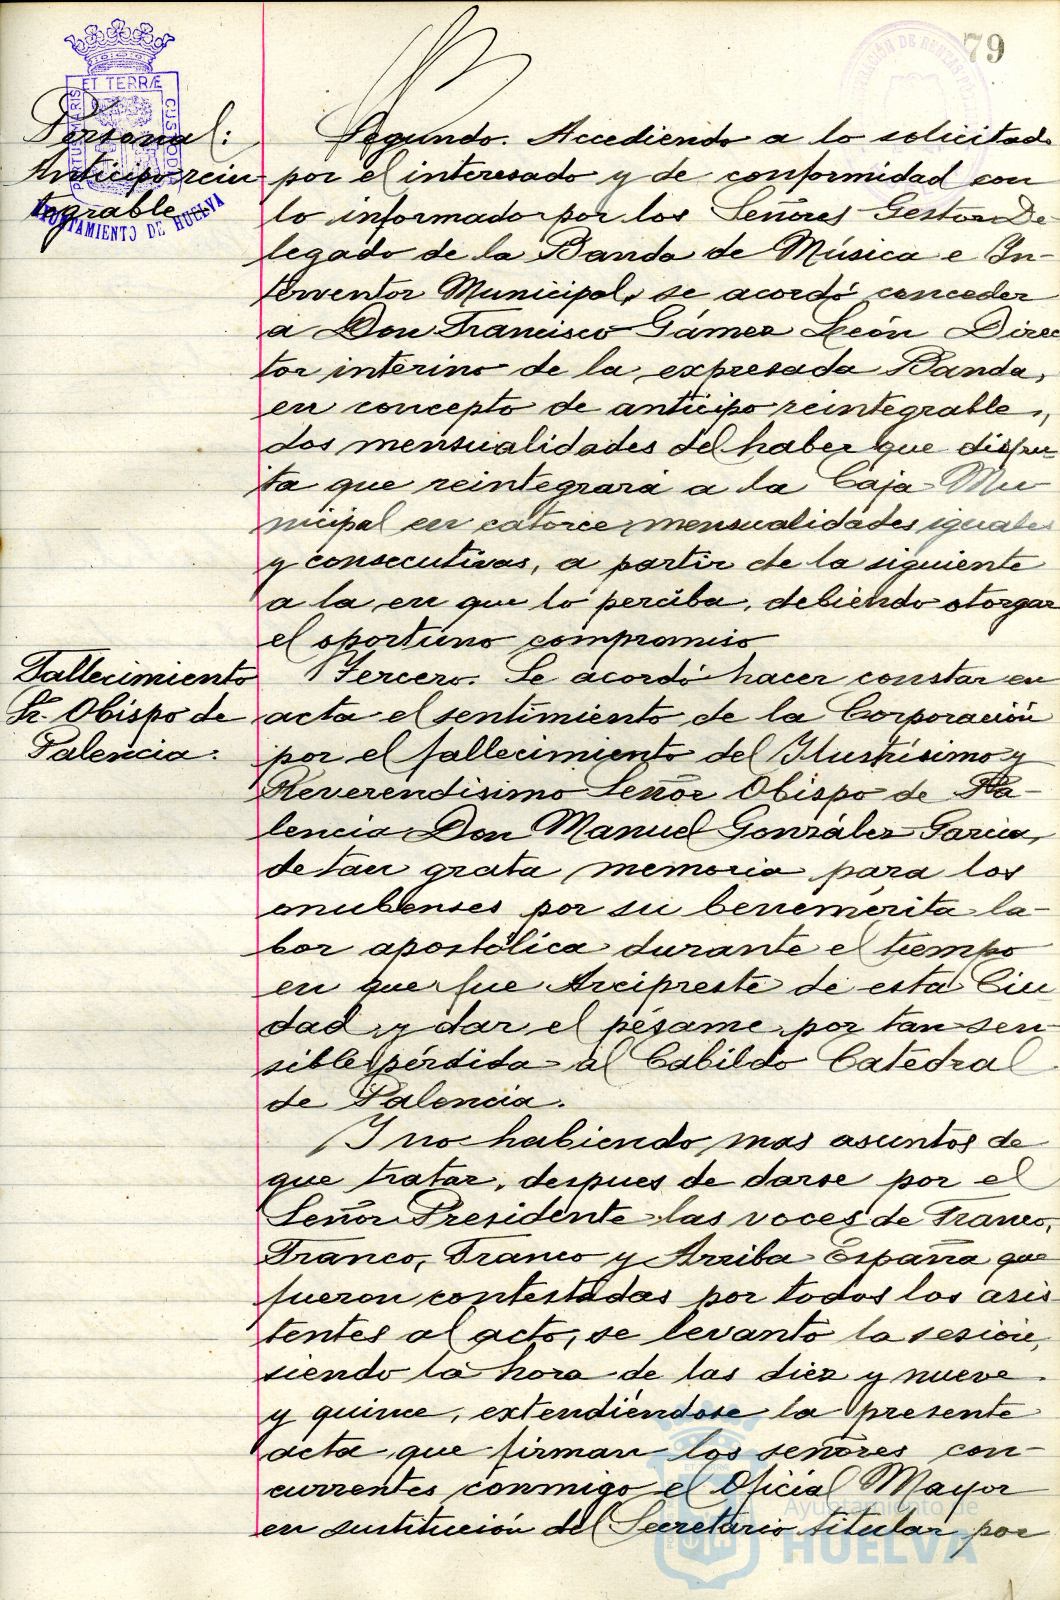 79
PORTUS MARIS ET TERRÆ CUSTODIA
AYUNTAMIENTO DE HUELVA
Personal:
Anticipo rein
tegrable
Segundo. Accediendo a lo solicitado
por el interesado y de conformidad con
lo informado por los Señores Gestor De-
legado de la Banda de Música e In-
terventor Municipal, se acordó conceder
a Don Francisco Gámez León Direc
tor interino de la expresada Banda,
en concepto de anticipo reintegrable,
dos mensualidades del haber que disfru-
ta que reintegrará a la Caja Mu-
nicipal en catorce mensualidades iguales
y consecutivas, a partir de la siguiente
a la en que lo perciba, debiendo otorgar
el oportuno compromiso
Fallecimiento
Sr. Obispo de
Palencia.
Tercero. Se acordó hacer constar en
acta el sentimiento de la Corporación
por el fallecimiento del Ilustrísimo y
Reverendísimo Señor Obispo de Pa-
lencia Don Manuel González García,
de tan grata memoria para los
onubenses por su benemérita la-
bor apostólica durante el tiempo
en que fue Arcipreste de esta Ciu
dad y dar el pésame por tan sen-
sible pérdida al Cabildo Catedral
de Palencia.
Y no habiendo mas asuntos de
que tratar, despues de darse por el
Señor Presidente las voces de Franco,
Franco, Franco y Arriba España que
fueron contestadas por todos los asis
tentes al acto, se levantó la sesión,
siendo la hora de las diez y nueve
y quince, extendiéndose la presente
acta que firman los señores con-
currentes conmigo el Oficial Mayor
en sustitución del Secretario titular por
Ayuntamiento de
HUELVA